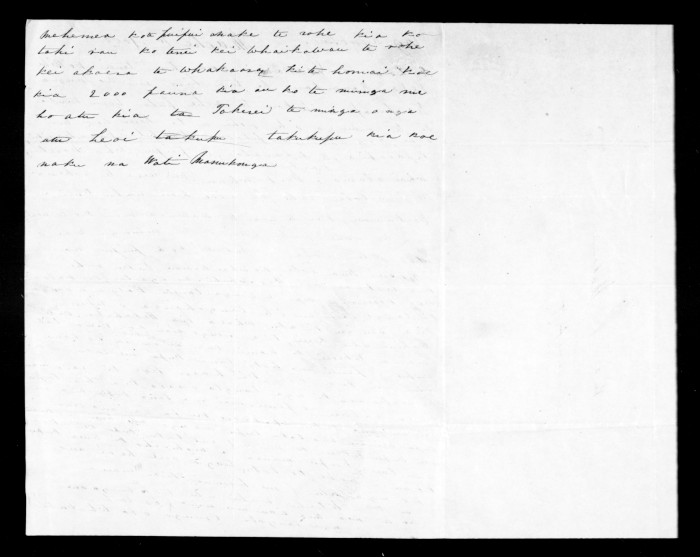 mehemea kotepuipui anake te rohe kia ko
tahi rau ko tenei kei Whaikawau te rohe
kei akaroa te whakaaro kite homai koe
kia 2000 pauna kia au ko te minga me
ho atu kia ta Takerei te minga o nga
utu heoi takupu takukupu kia koe
naku na Wati Manukonga